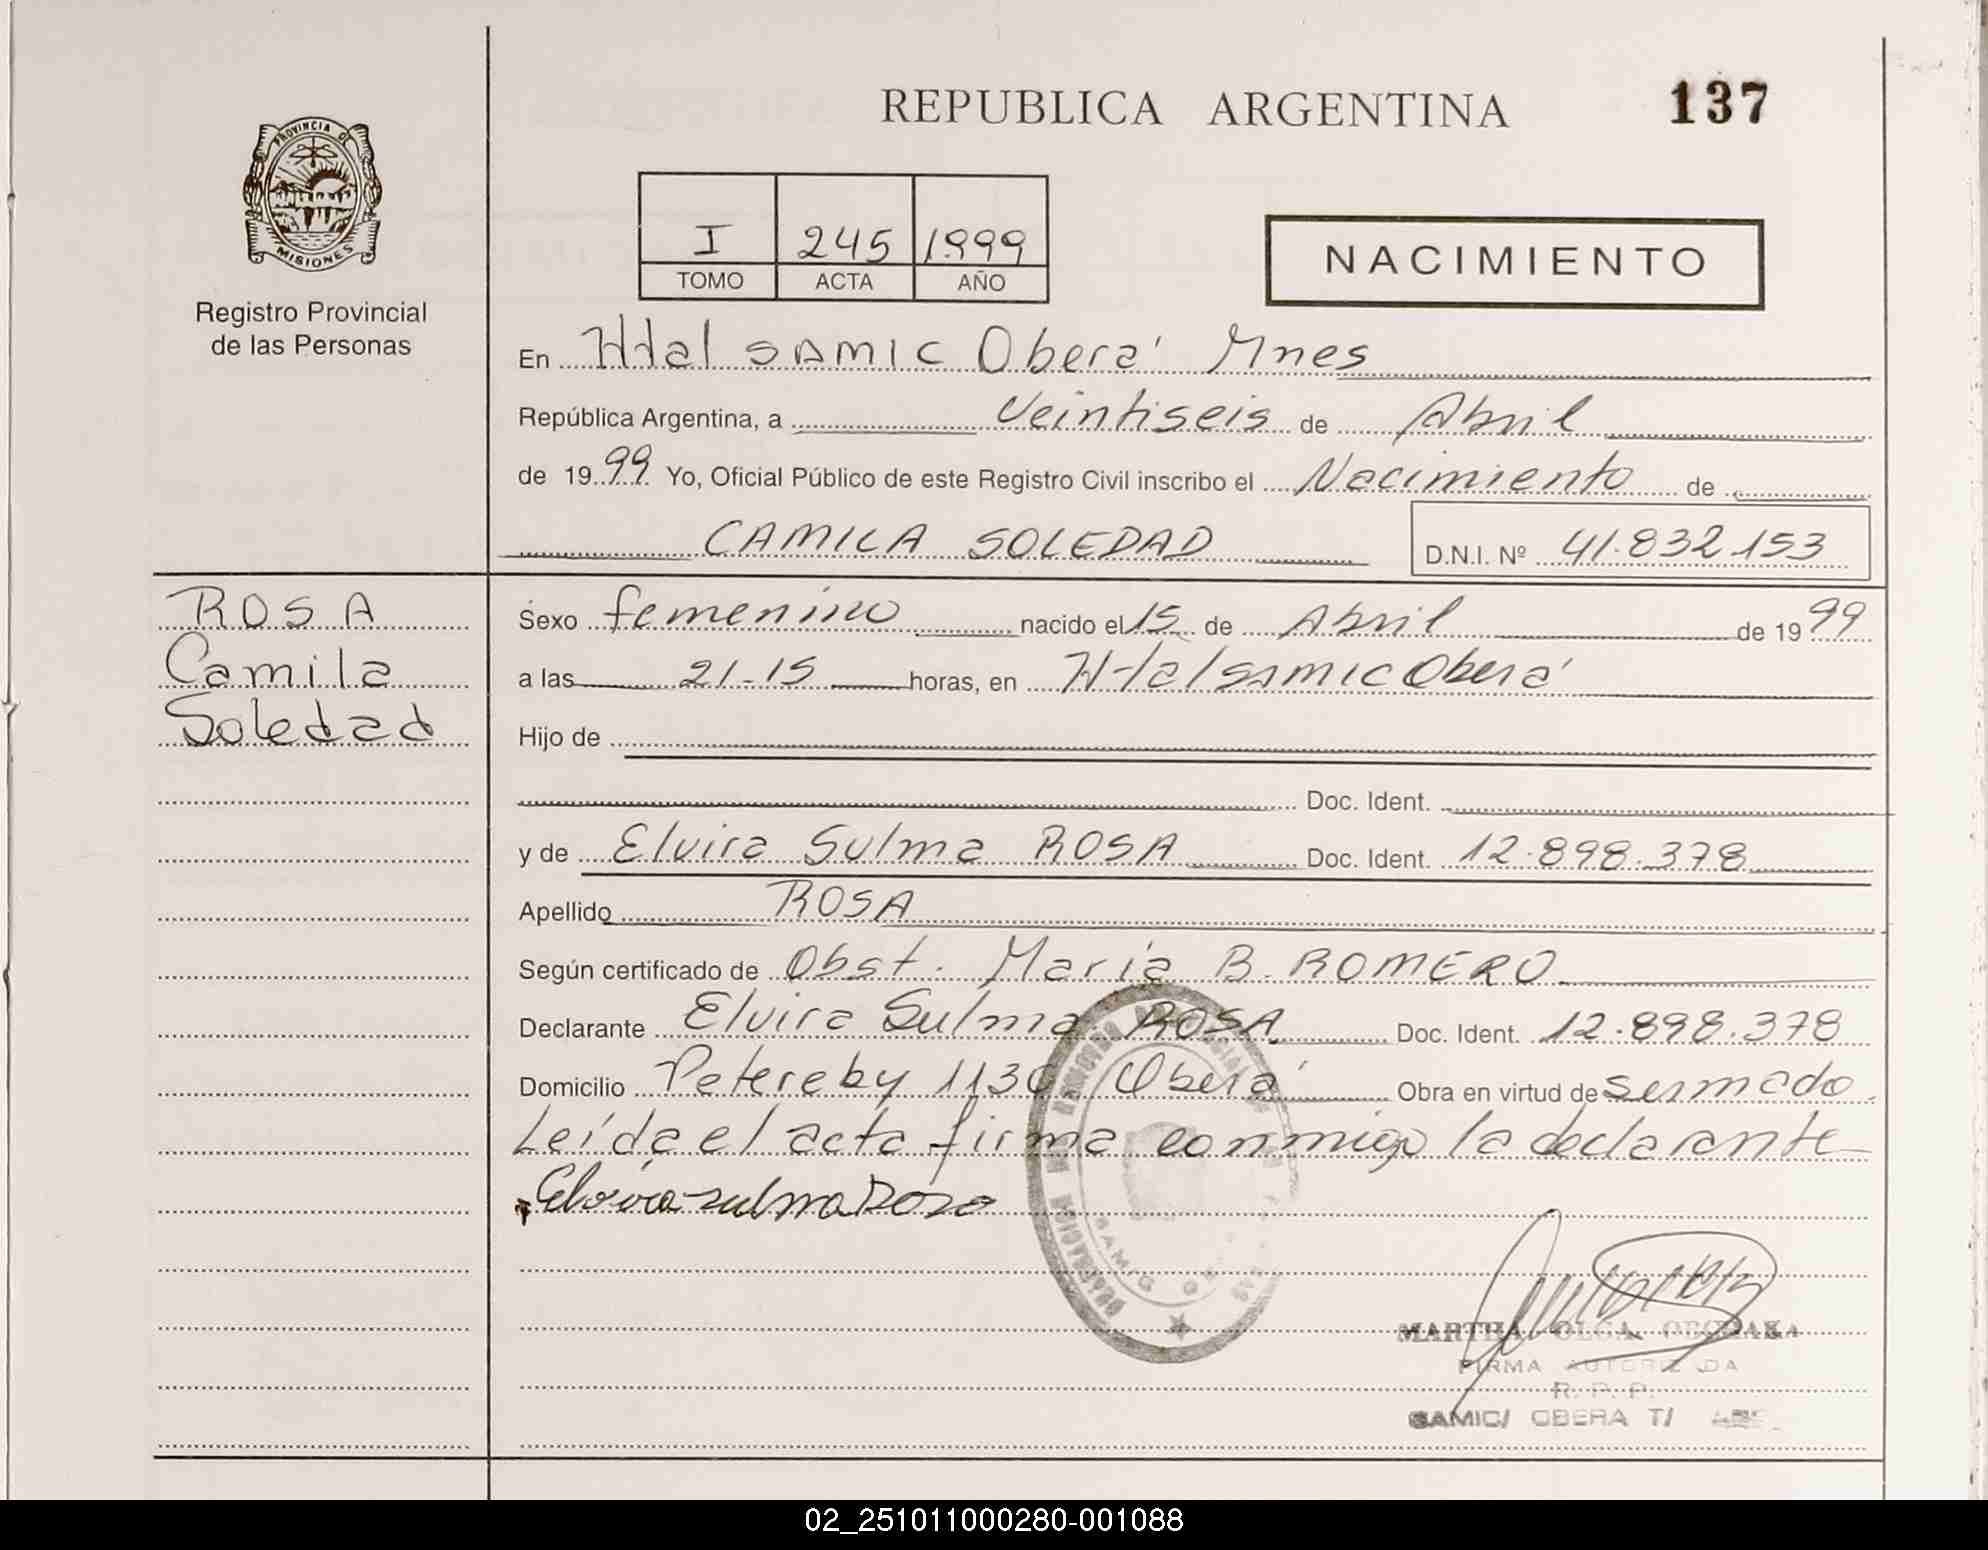 REPUBLICA ARGENTINA
137
PROVINCIA DE
MISIONES
Registro Provincial
de las Personas
I 245 1999
TOMO ACTA AÑO
NACIMIENTO
En Htal SAMIC Oberá Mnes
República Argentina, a Veintiseis de Abril
de 1999 Yo, Oficial Público de este Registro Civil inscribo el Nacimiento de
CAMILA SOLEDAD D.N.I. Nº 41.832.153
ROSA
Camila
Soledad
Sexo femenino nacido el 15 de Abril de 1999
a las 21-15 horas, en Htal SAMIC Oberá
Hijo de
Doc. Ident.
y de Elvira Sulma ROSA Doc. Ident. 12.898.378
Apellido ROSA
Según certificado de Obst. María B. ROMERO
Declarante Elvira Sulma ROSA Doc. Ident. 12.898.378
Domicilio Petereby 1130 Oberá Obra en virtud de
Leída el acta firma conmigo la declarante
Elvira sulma Rosa
MARTHA OLGA
FIRMA AUTORIZADA
R. P. P.
SAMIC/ OBERA
02_251011000280-001088